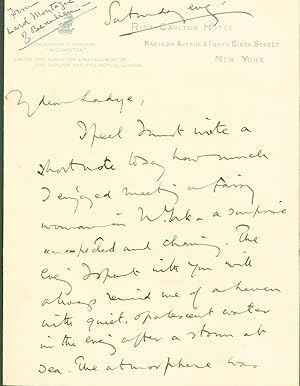 From
Lord Montague
of Beaulieu
Saturday evg
RITZ-CARLTON HOTEL
TELEGRAPHIC ADDRESS
"RIZCARLTON"
MADISON AVENUE & FORTY SIXTH STREET
UNDER THE DIRECTION & MANAGEMENT OF
THE CARLTON AND RITZ HOTELS, LONDON.
NEW YORK
My dear Ladye,
I feel I must write a
short note to say how much
I enjoyed meeting a fairy
woman in N. York – a surprise
unexpected and charming. The
Evng I spent with you will
always remind me of a haven
with quiet, opalescent water
in the evng after a storm at
sea. The atmosphere was